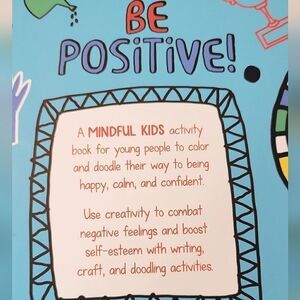 BE
POSITIVE!
A MINDFUL KIDS activity
book for young people to color
and doodle their way to being
happy, calm, and confident.
Use creativity to combat
negative feelings and boost
self-esteem with writing,
craft, and doodling activities.